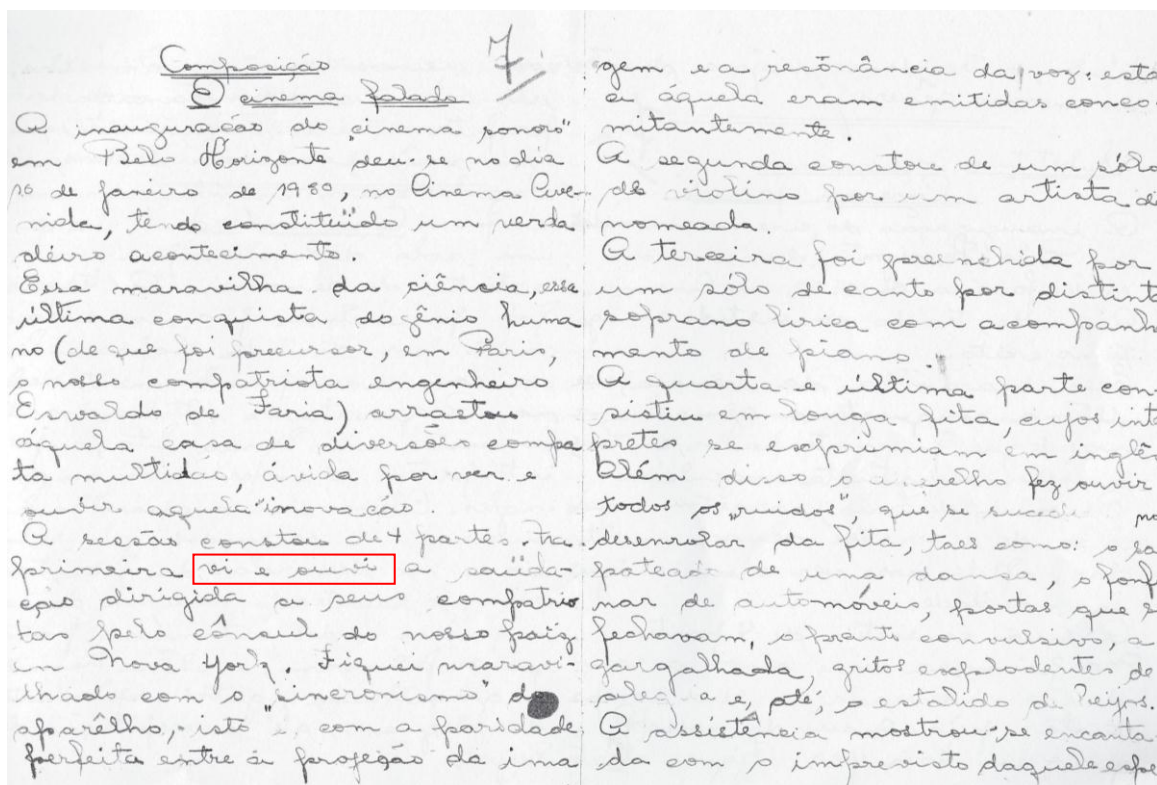 Composição 7
O cinema falado
A inauguração do "cinema sonoro"
em Belo Horizonte deu-se no dia
10 de janeiro de 1980, no Cinema Ave-
nida, tendo constituïdo um verda
déiro acontecimento.
Essa maravilha da ciência, essa
última conquista do gênio huma
no (de que foi precursor, em Paris,
o nosso compatriota engenheiro
Esvaldo de Faria) arrastou
àquela casa de diversões compa
ta multidão, ávida por ver e
ouvir aquela inovação
A sessão constou de 4 partes. Na
primeira vi e ouvi a saüda-
ção dirigida a seus compatrio
tas pelo cônsul do nosso paiz
em Nova York. Fiquei maravi-
lhado com o "sincronismo" do
aparêlho, isto é, com a paridade
perfeita entre a projeção da ima
gem e a resonância da voz: esta
e aquela eram emitidas conco-
mitantemente.
A segunda constou de um sólo
de violino por um artista de
nomeada.
A terceira foi preenchida por
um sólo de canto por distinta
soprano lirica com acompanha
mento de piano.
A quarta e última parte con-
sistiu em longa fita, cujos inté
pretes se exprimiam em inglês
Além disso o aparelho fez ouvir
todos os "ruidos", que se sucedem no
desenrolar da fita, taes como: o sa
pateado de uma dansa, o fonfo
nar de automóveis, portas que se
fechavam, o pranto convulsivo, a
gargalhada, gritos explodentes de
alegria e, até, o estalido de beijos.
A assistência mostrou-se encanta
da com o imprevisto daquele espe